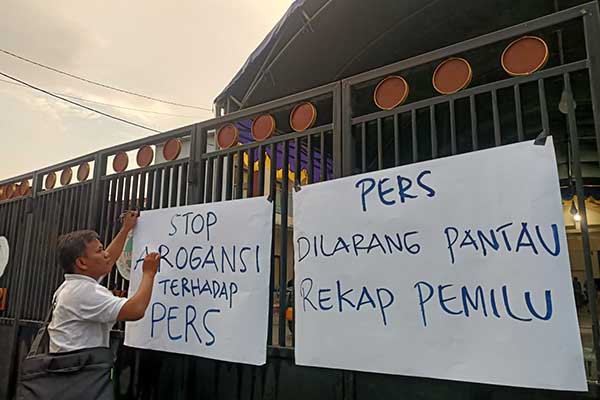 STOP
AROGANSI
TERHADAP
PERS
PERS
DILARANG PANTAU
REKAP PEMILU